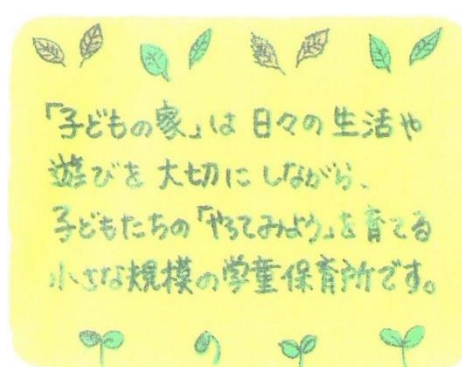 「子どもの家」は日々の生活や
遊びを大切にしながら、
子どもたちの「やってみよう」を育てる
小さな規模の学童保育所です。